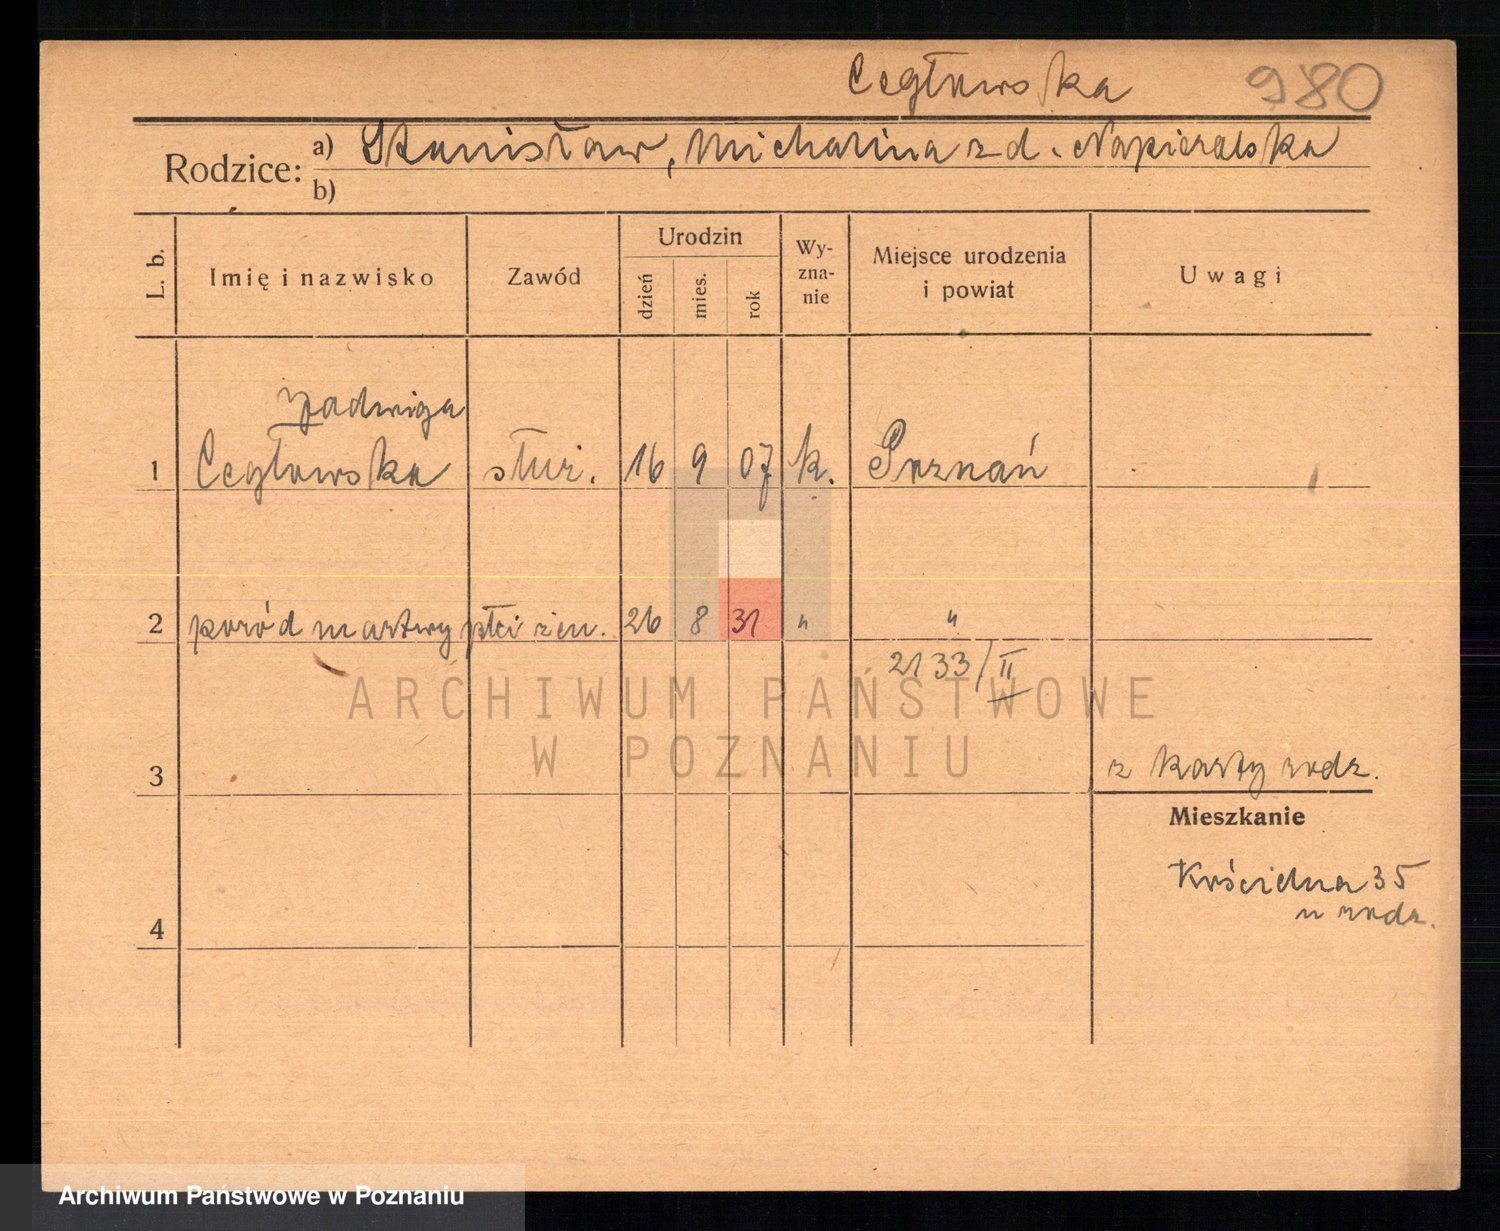 Cegłowska 980
Rodzice: a) Stanisław, Michalina z d. Napieralska
b)
L. b. Imię i nazwisko Zawód Urodzin dzień mies. rok Wy-zna-nie Miejsce urodzenia i powiat Uwagi
Jadwiga
1 Cegłowska służ. 16 9 07 k. Poznań
2 poród martwy płci żeń. 26 8 31 " "
2133/II
ARCHIWUM PAŃSTWOWE
W POZNANIU
3 z karty rodz.
Mieszkanie
Kościelna 35
u rodz.
4
Archiwum Państwowe w Poznaniu